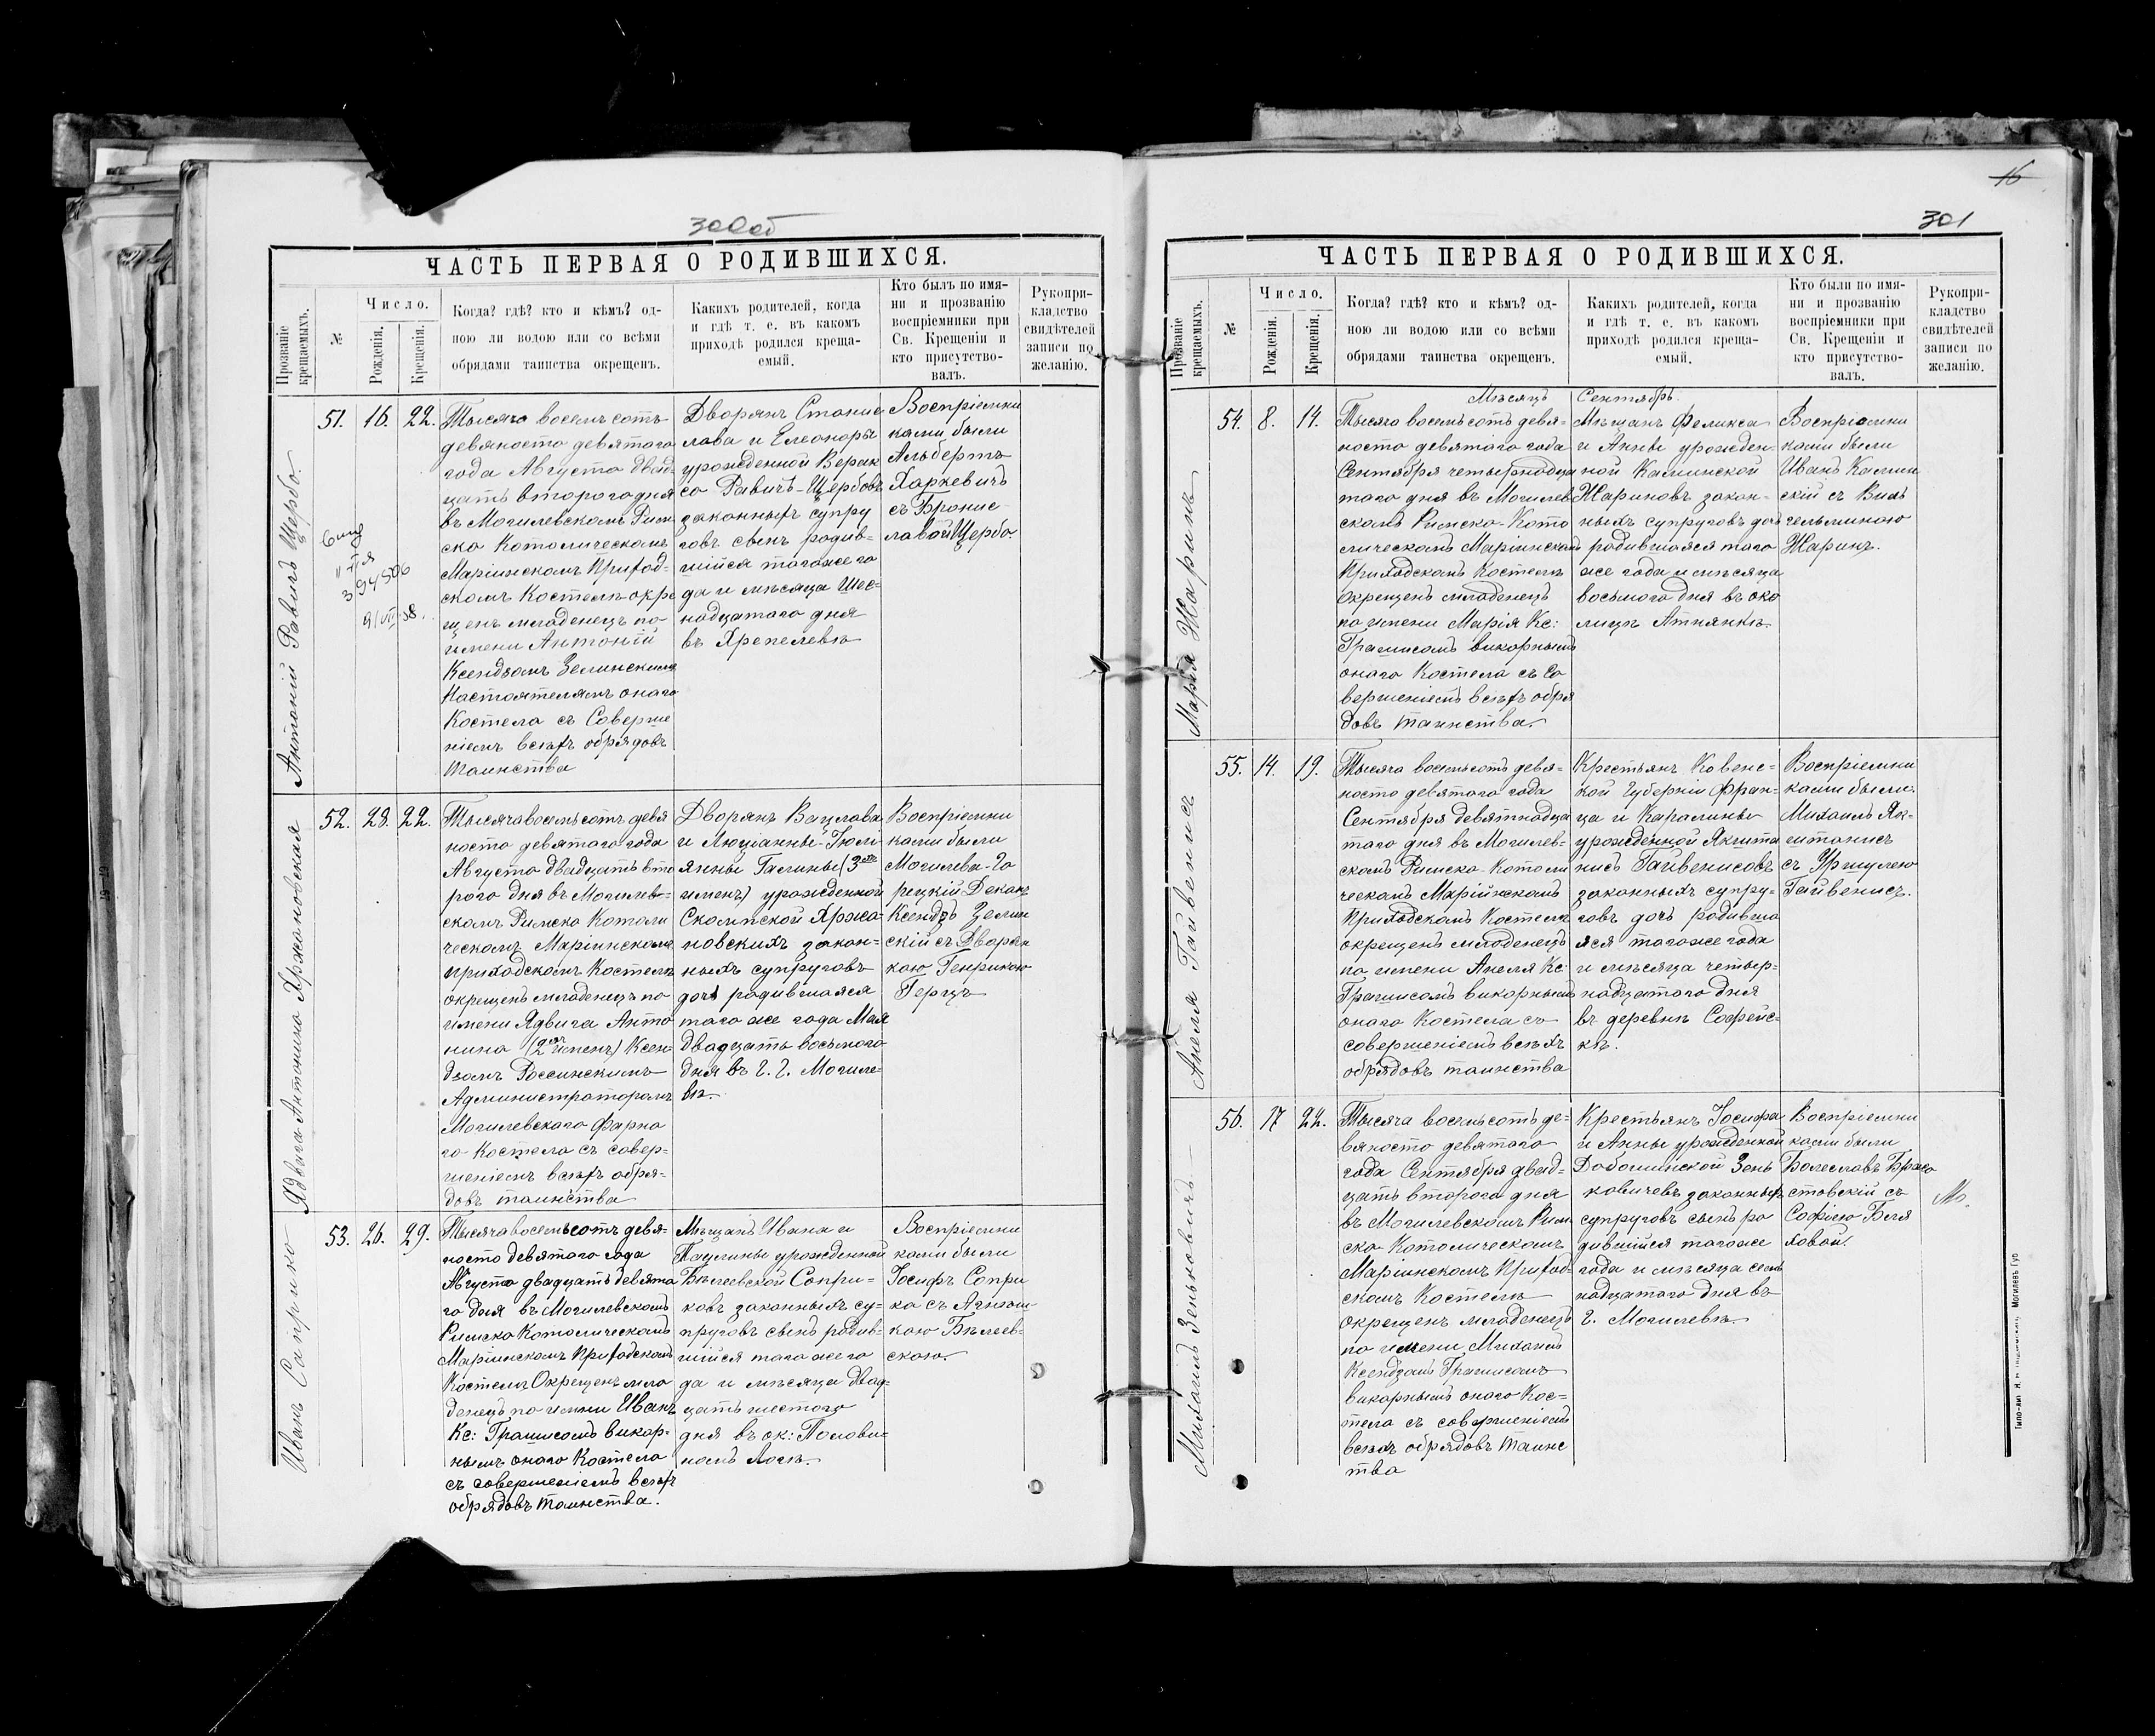 300об
ЧАСТЬ ПЕРВАЯ О РОДИВШИХСЯ.
Прозваніе крещаемыхъ.
№
Число.
Рожденія.
Крещенія.
Когда? гдѣ? кто и кѣмъ? од-
ною ли водою или со всѣми
обрядами таинства окрещенъ.
Какихъ родителей, когда
и гдѣ т. е. въ какомъ
приходѣ родился креща-
емый.
Кто былъ по имя-
ни и прозванію
воспріемники при
Св. Крещеніи и
кто присутство-
валъ.
Рукопри-
кладство
свидѣтелей
записи по
желанію.
Антоній Равичъ Щербо.
51. 16. 22.
394506
Тысяча восемьсотъ
девяносто девятого
года Августа двад-
цать второго дня
въ Могилевскомъ Рим-
ско Католическомъ
Маріинскомъ Приход-
скомъ Костелѣ окре
щенъ младенецъ по
имени Антоній
Ксендзомъ Зелинскимъ
Настоятелемъ онаго
Костела съ Соверше
ніемъ всѣхъ обрядовъ
Таинства
Дворянъ Станис
лава и Елеоноры
урожденной Верак
со Равичъ-Щербовъ
законныхъ супру
говъ сынъ родив-
шійся тогоже го
да и мѣсяца Шес-
надцатого дня
въ Хрепелевѣ
Воспріемни
ками были
Альбертъ
Харкевичъ
съ Бронис-
лавой Щербо.
Ядвига-Антонина Хржановская
52. 28. 22.
Тысяча восемьсотъ девя
носто девятого года
Августа двадцать вто
рого дня въ Могилев-
скомъ Римско Католи
ческомъ Маріинскомъ
приходскомъ Костелѣ
окрещенъ младенецъ по
имени Ядвига Анто
нина (2хъ именъ) Ксен
дзомъ Россинскимъ
Администраторомъ
Могилевского Фарна
го Костела съ совер-
шеніемъ всѣхъ обря-
довъ таинства
Дворянъ Вацлава
и Люціанны-Юлі
янны Галины (3хъ
именъ) урожденной
Скомпской Хржа
новскихъ закон-
ныхъ супруговъ
дочь родившаяся
того же года Мая
двадцать восьмого
дня въ г. г. Могиле-
вѣ.
Воспріемни
ками были
Могилево-Го
рецкій Деканъ
Ксендзъ Зелин
скій съ Дворян
кою Генрикою
Герцъ
Иванъ Саприко
53. 26. 29.
Тысяча восемьсотъ девя-
носто девятого года
Августа двадцать девята
го дня въ Могилевскомъ
Римско Католическомъ
Маріинскомъ Приходскомъ
Костелѣ Окрещенъ мла
денецъ по имени Иванъ
Кс: Грашисомъ викар-
нымъ онаго Костела
съ совершеніемъ всѣхъ
обрядовъ Таинства.
Мѣщанъ Ивана и
Паулины урожденной
Бѣлевской Сапри-
ковъ законныхъ су-
пруговъ сынъ родив-
шійся того же го
да и мѣсяца двад-
цать шестого
дня въ ок: Полови-
номъ Логѣ.
Воспріемни
ками были
Іосифъ Сапри
ка съ Агнеш-
кою Бѣлев-
скою.
16
301
ЧАСТЬ ПЕРВАЯ О РОДИВШИХСЯ.
Прозваніе крещаемыхъ.
№
Число.
Рожденія.
Крещенія.
Когда? гдѣ? кто и кѣмъ? од-
ною ли водою или со всѣми
обрядами таинства окрещенъ.
Какихъ родителей, когда
и гдѣ т. е. въ какомъ
приходѣ родился креща-
емый.
Кто были по имя-
ни и прозванію
воспріемники при
Св. Крещеніи и
кто присутство-
валъ.
Рукопри-
кладство
свидѣтелей
записи по
желанію.
Мѣсяцъ Сентябрь.
Марія Жаринъ
54. 8. 14.
Тысяча восемьсотъ девя-
носто девятого года
Сентября четырнадца
того дня въ Могилев
скомъ Римско-Като
лическомъ Маріинскомъ
Приходскомъ Костелѣ
Окрещенъ младенецъ
по имени Марія Кс:
Грашисомъ викарнымъ
онаго Костела съ Со
вершеніемъ всѣхъ обря
довъ таинства.
Мѣщанъ Феликса
и Анны урожден-
ной Калинской
Жариновъ закон-
ныхъ супруговъ дочь
родившаяся того
же года и мѣсяца
восьмого дня въ око
лицѣ Атнянкѣ.
Воспріемни
ками были
Иванъ Калин
скій съ Виль
гельминою
Жаринъ.
Анеля Гайвенисъ
55. 14. 19.
Тысяча восемьсотъ девя-
носто девятого года
Сентября девятнадца
того дня въ Могилев-
скомъ Римско-Католи
ческомъ Марійнскомъ
Приходскомъ Костелѣ
окрещенъ младенецъ
по имени Анеля Кс:
Грашисомъ викарнымъ
онаго Костела съ
совершеніемъ всѣхъ
обрядовъ таинства
Крестьянъ Ковенс-
кой Губерніи Фран-
ца и Каралины
урожденной Якшта
нисъ Гайвенисовъ
законныхъ супру-
говъ дочь родивша
яся тогоже года
и мѣсяца четыр-
надцатого дня
въ деревнѣ Софейс-
кѣ.
Воспріемни
ками были.
Михаилъ Як-
штонисъ
съ Уршулею
Гайвенисъ.
Михаилъ Зеньковичъ
56. 17 22.
Тысяча восемьсотъ де-
вяносто девятого
года Сентября двад-
цать второго дня
въ Могилевскомъ Рим
ско-Католическомъ
Маріинскомъ Приход-
скомъ Костелѣ
окрещенъ младенецъ
по имени Михаилъ
Ксендзомъ Грашисомъ
викарнымъ онаго Кос-
тела съ совершеніемъ
всѣхъ обрядовъ Таинс
тва
Крестьянъ Іосифа
и Анны урожденной
Добошинской Зень
ковичевъ законныхъ
супруговъ сынъ ро
дившійся тогоже
года и мѣсяца сем
надцатого дня въ
г. Могилевѣ.
Воспріемни
ками были
Болеславъ Бржо
стовскій съ
Софіею Беля
ковой.